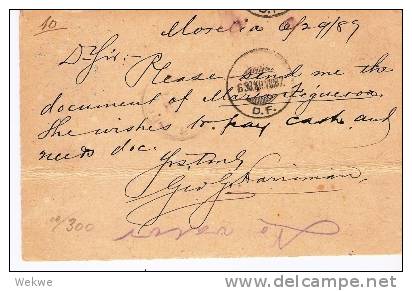 10
Morelia 6/29/89
Dr Sir:-
Please send me the
document of Figueroa.
She wishes to pay cash and
needs doc.
Yrs. truly
Geo. G. Harriman
D.F.
/300
Wekwe
www.delcampe.net